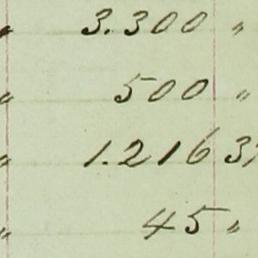 " 3.300 "
" 500 "
" 1.216 3
" 45 "